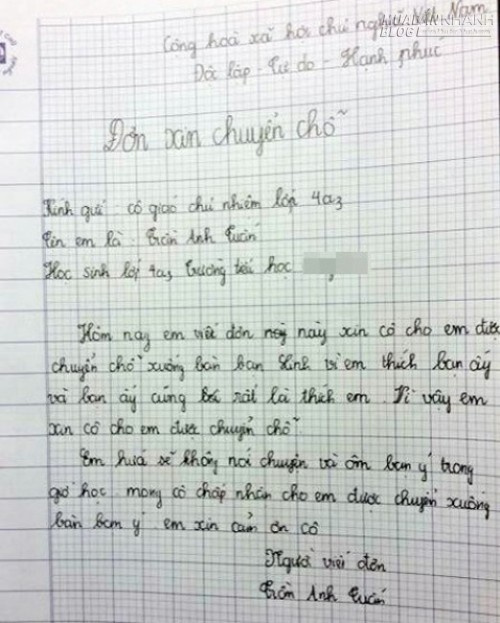 Cộng hoà xã hội chủ nghĩa Việt Nam
Độc lập - Tự do - Hạnh phúc
MUABANNHANH
BLOG
Đơn xin chuyển chỗ
Kính gửi: cô giáo chủ nhiệm lớp 4a3
Tên em là: Trần Anh Tuấn
Học sinh lớp 4a3 trường tiểu học
Hôm nay em viết đơn này xin cô cho em được
chuyển chỗ xuống bàn bạn Linh vì em thích bạn ấy
và bạn ấy cũng rất là thích em. Vì vậy em
xin cô cho em được chuyển chỗ.
Em hứa sẽ không nói chuyện và ôm bạn ý trong
giờ học. mong cô chấp nhân cho em được chuyển xuống
bàn bạn ý. em xin cảm ơn cô
Người viết đơn
Trần Anh Tuấn